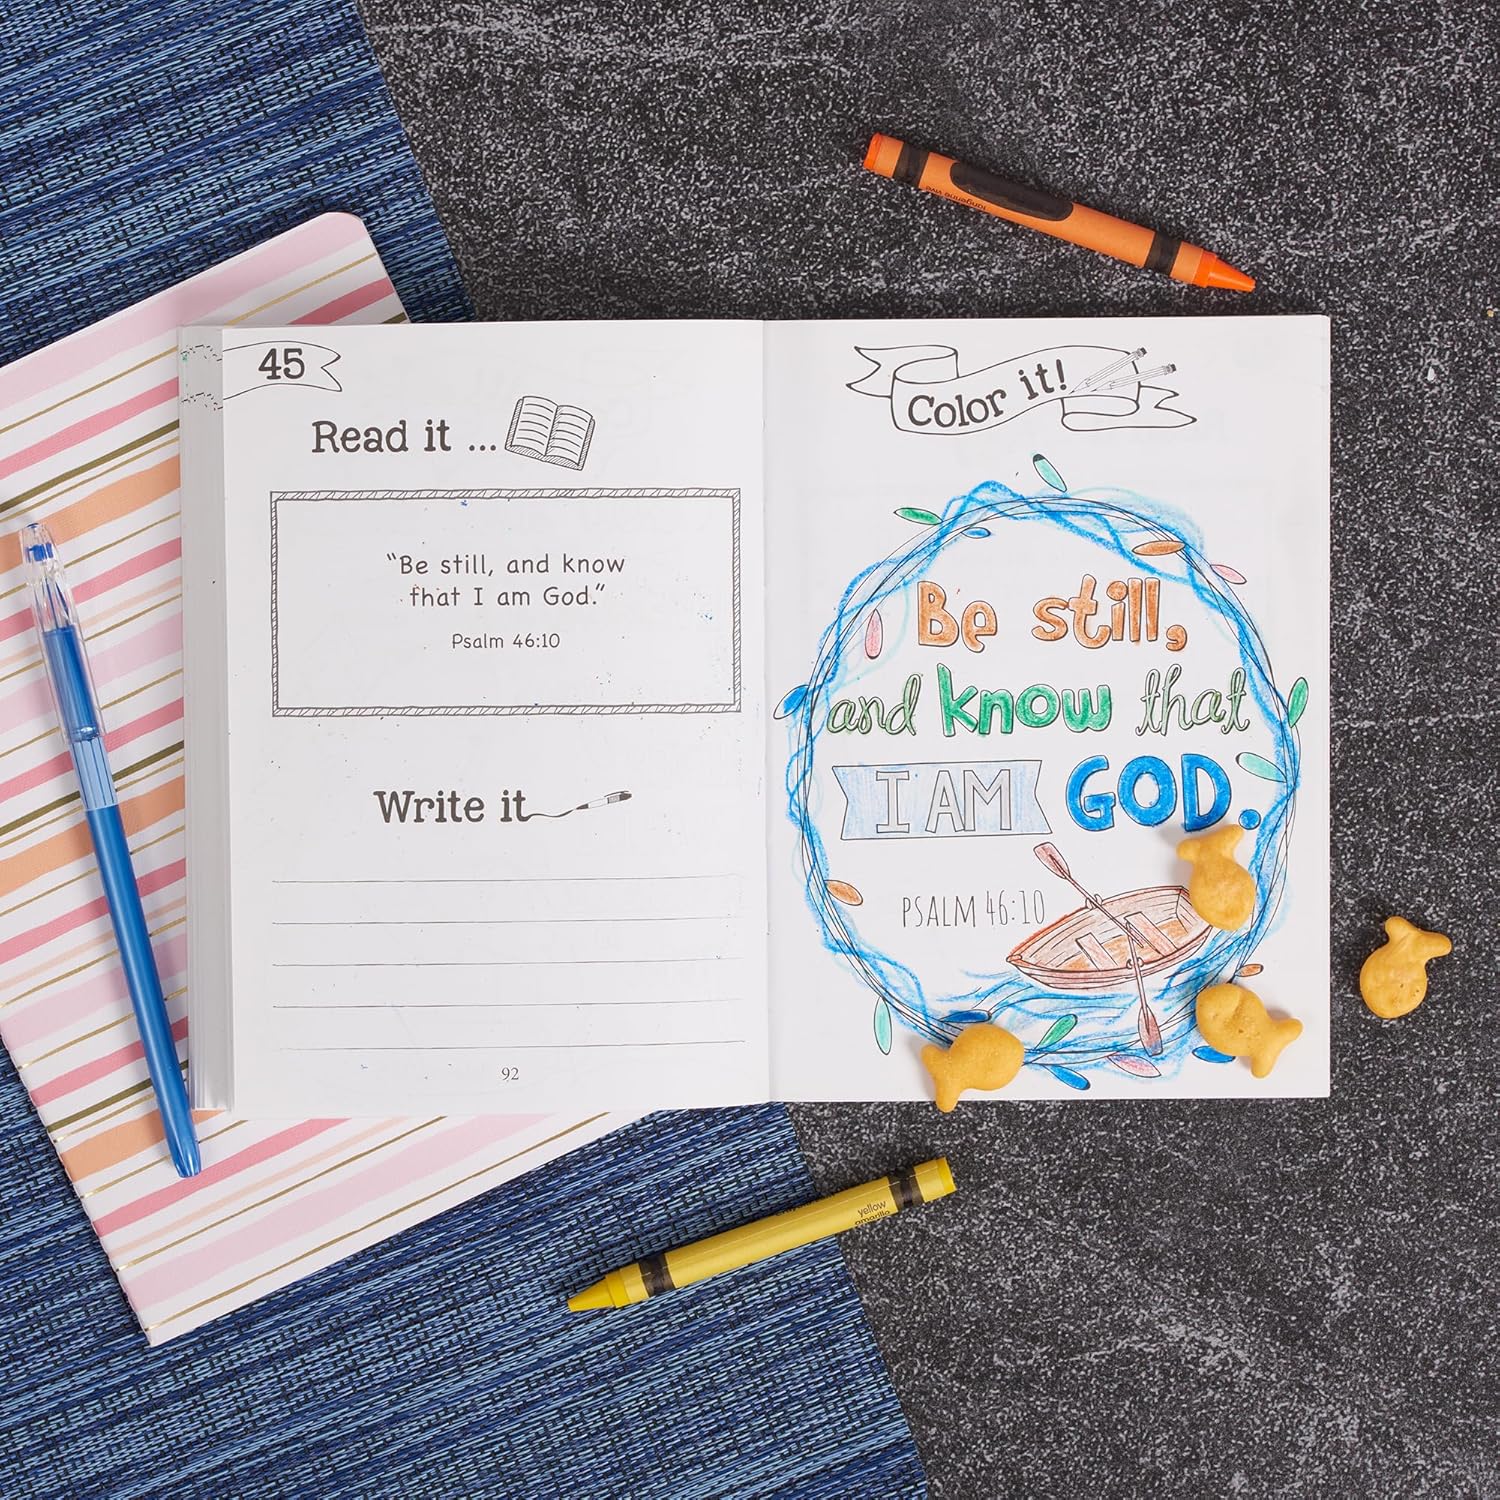 45
Read it ...
“Be still, and know
that I am God.”
Psalm 46:10
Write it
92
Color it!
Be still,
and know that
I AM GOD.
PSALM 46:10
tangerine vive
yellow
amarillo